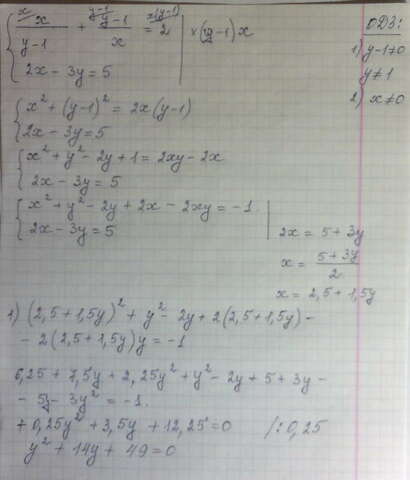 x/(y-1) + (y-1)/x = 2 | ×(y-1)x
2x - 3y = 5
ОДЗ:
1) y-1≠0
y≠1
2) x≠0
x² + (y-1)² = 2x(y-1)
2x - 3y = 5
x² + y² - 2y + 1 = 2xy - 2x
2x - 3y = 5
x² + y² - 2y + 2x - 2xy = -1
2x - 3y = 5
2x = 5 + 3y
x = (5 + 3y)/2
x = 2,5 + 1,5y
1) (2,5 + 1,5y)² + y² - 2y + 2(2,5 + 1,5y) -
- 2(2,5 + 1,5y)y = -1
6,25 + 7,5y + 2,25y² + y² - 2y + 5 + 3y -
- 5y - 3y² = -1.
+ 0,25y² + 3,5y + 12,25 = 0 /:0,25
y² + 14y + 49 = 0